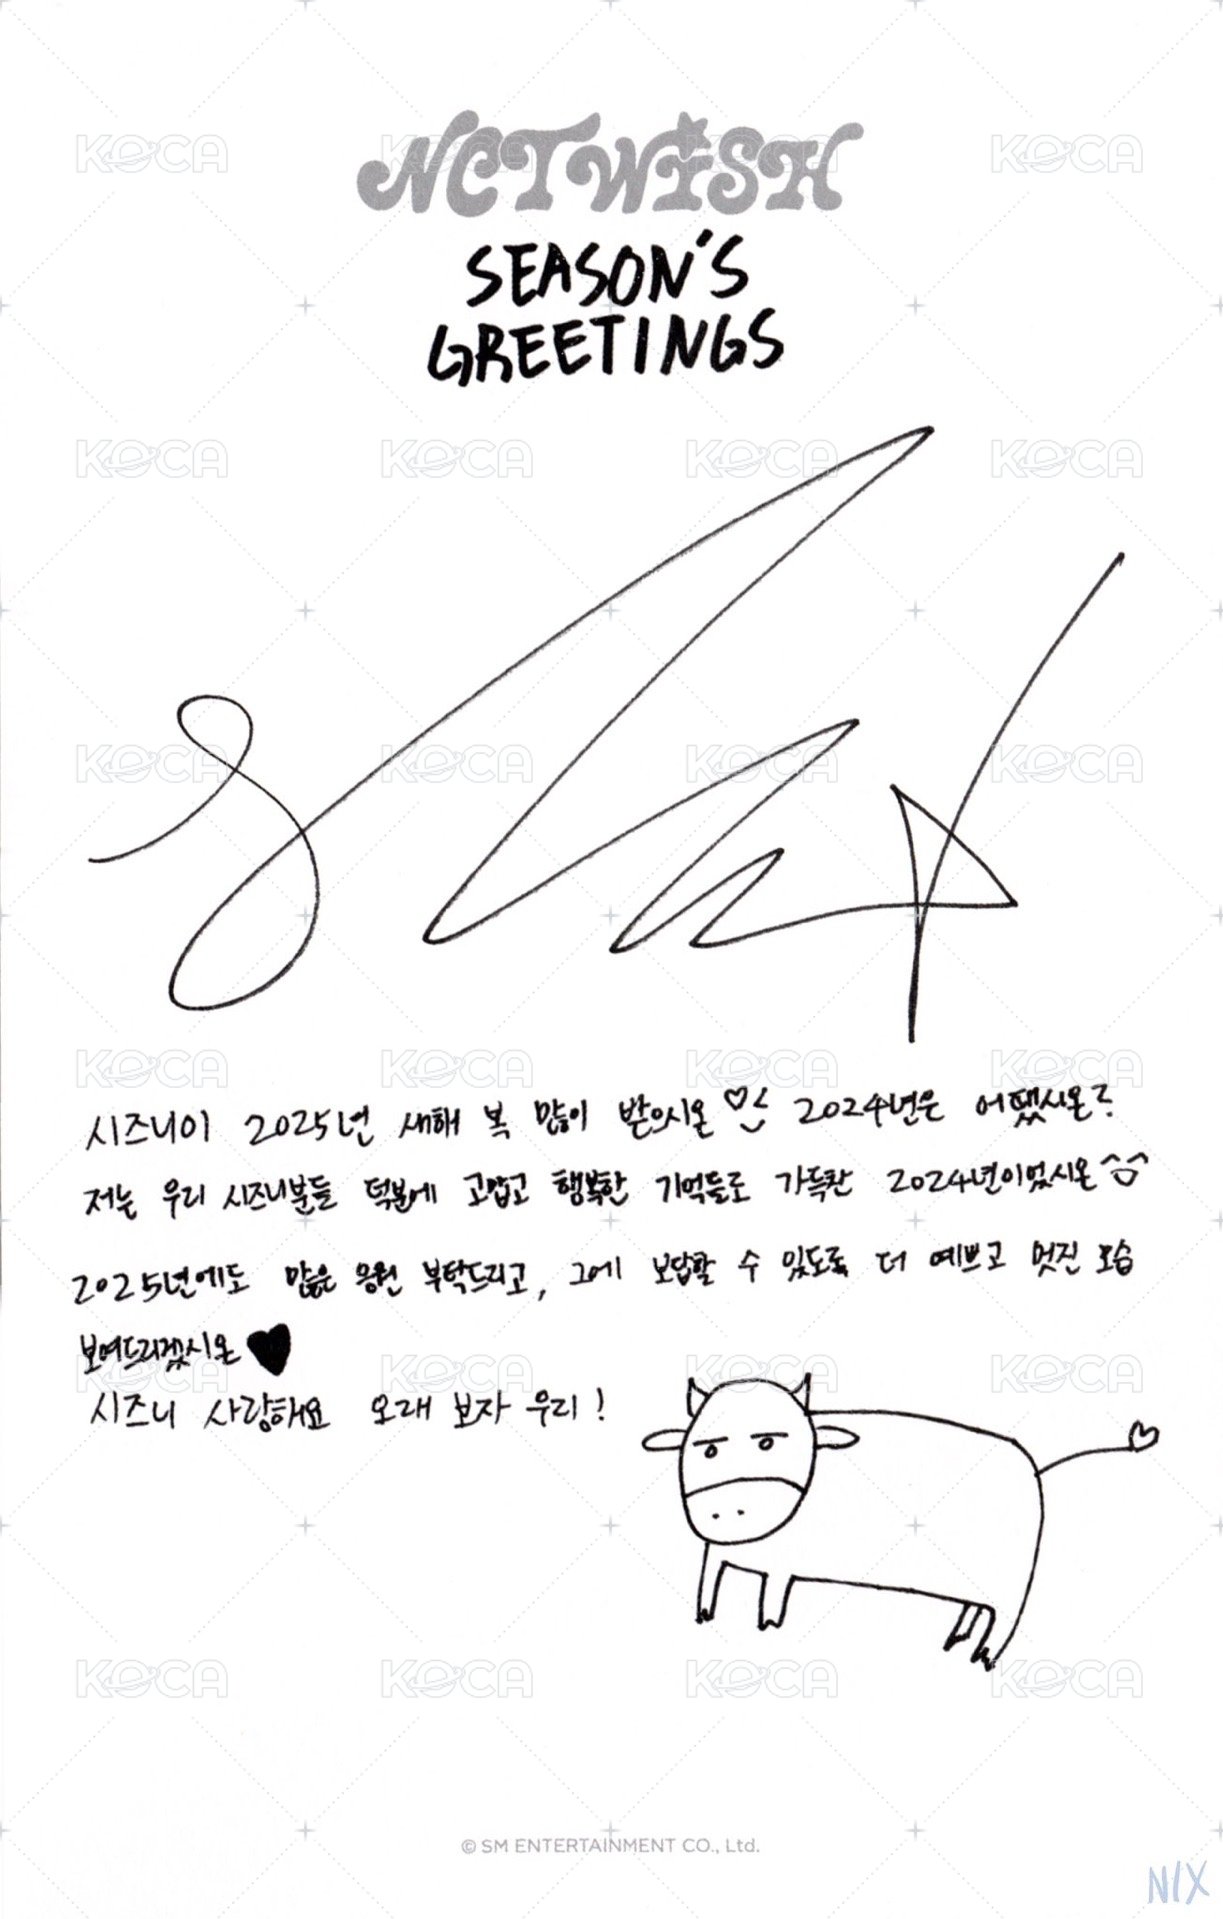 NCT WISH
SEASON'S
GREETINGS
시즈니이 2025년 새해 복 많이 받으시온♡ 2024년은 어땠시온?
저는 우리 시즈니분들 덕분에 고맙고 행복한 기억들로 가득찬 2024년이었시온^^
2025년에도 많은 응원 부탁드리고, 그에 보답할 수 있도록 더 예쁘고 멋진 모습
보여드리겠시온♥
시즈니 사랑해요 오래 보자 우리!
© SM ENTERTAINMENT CO., Ltd.
N/X
KOCA